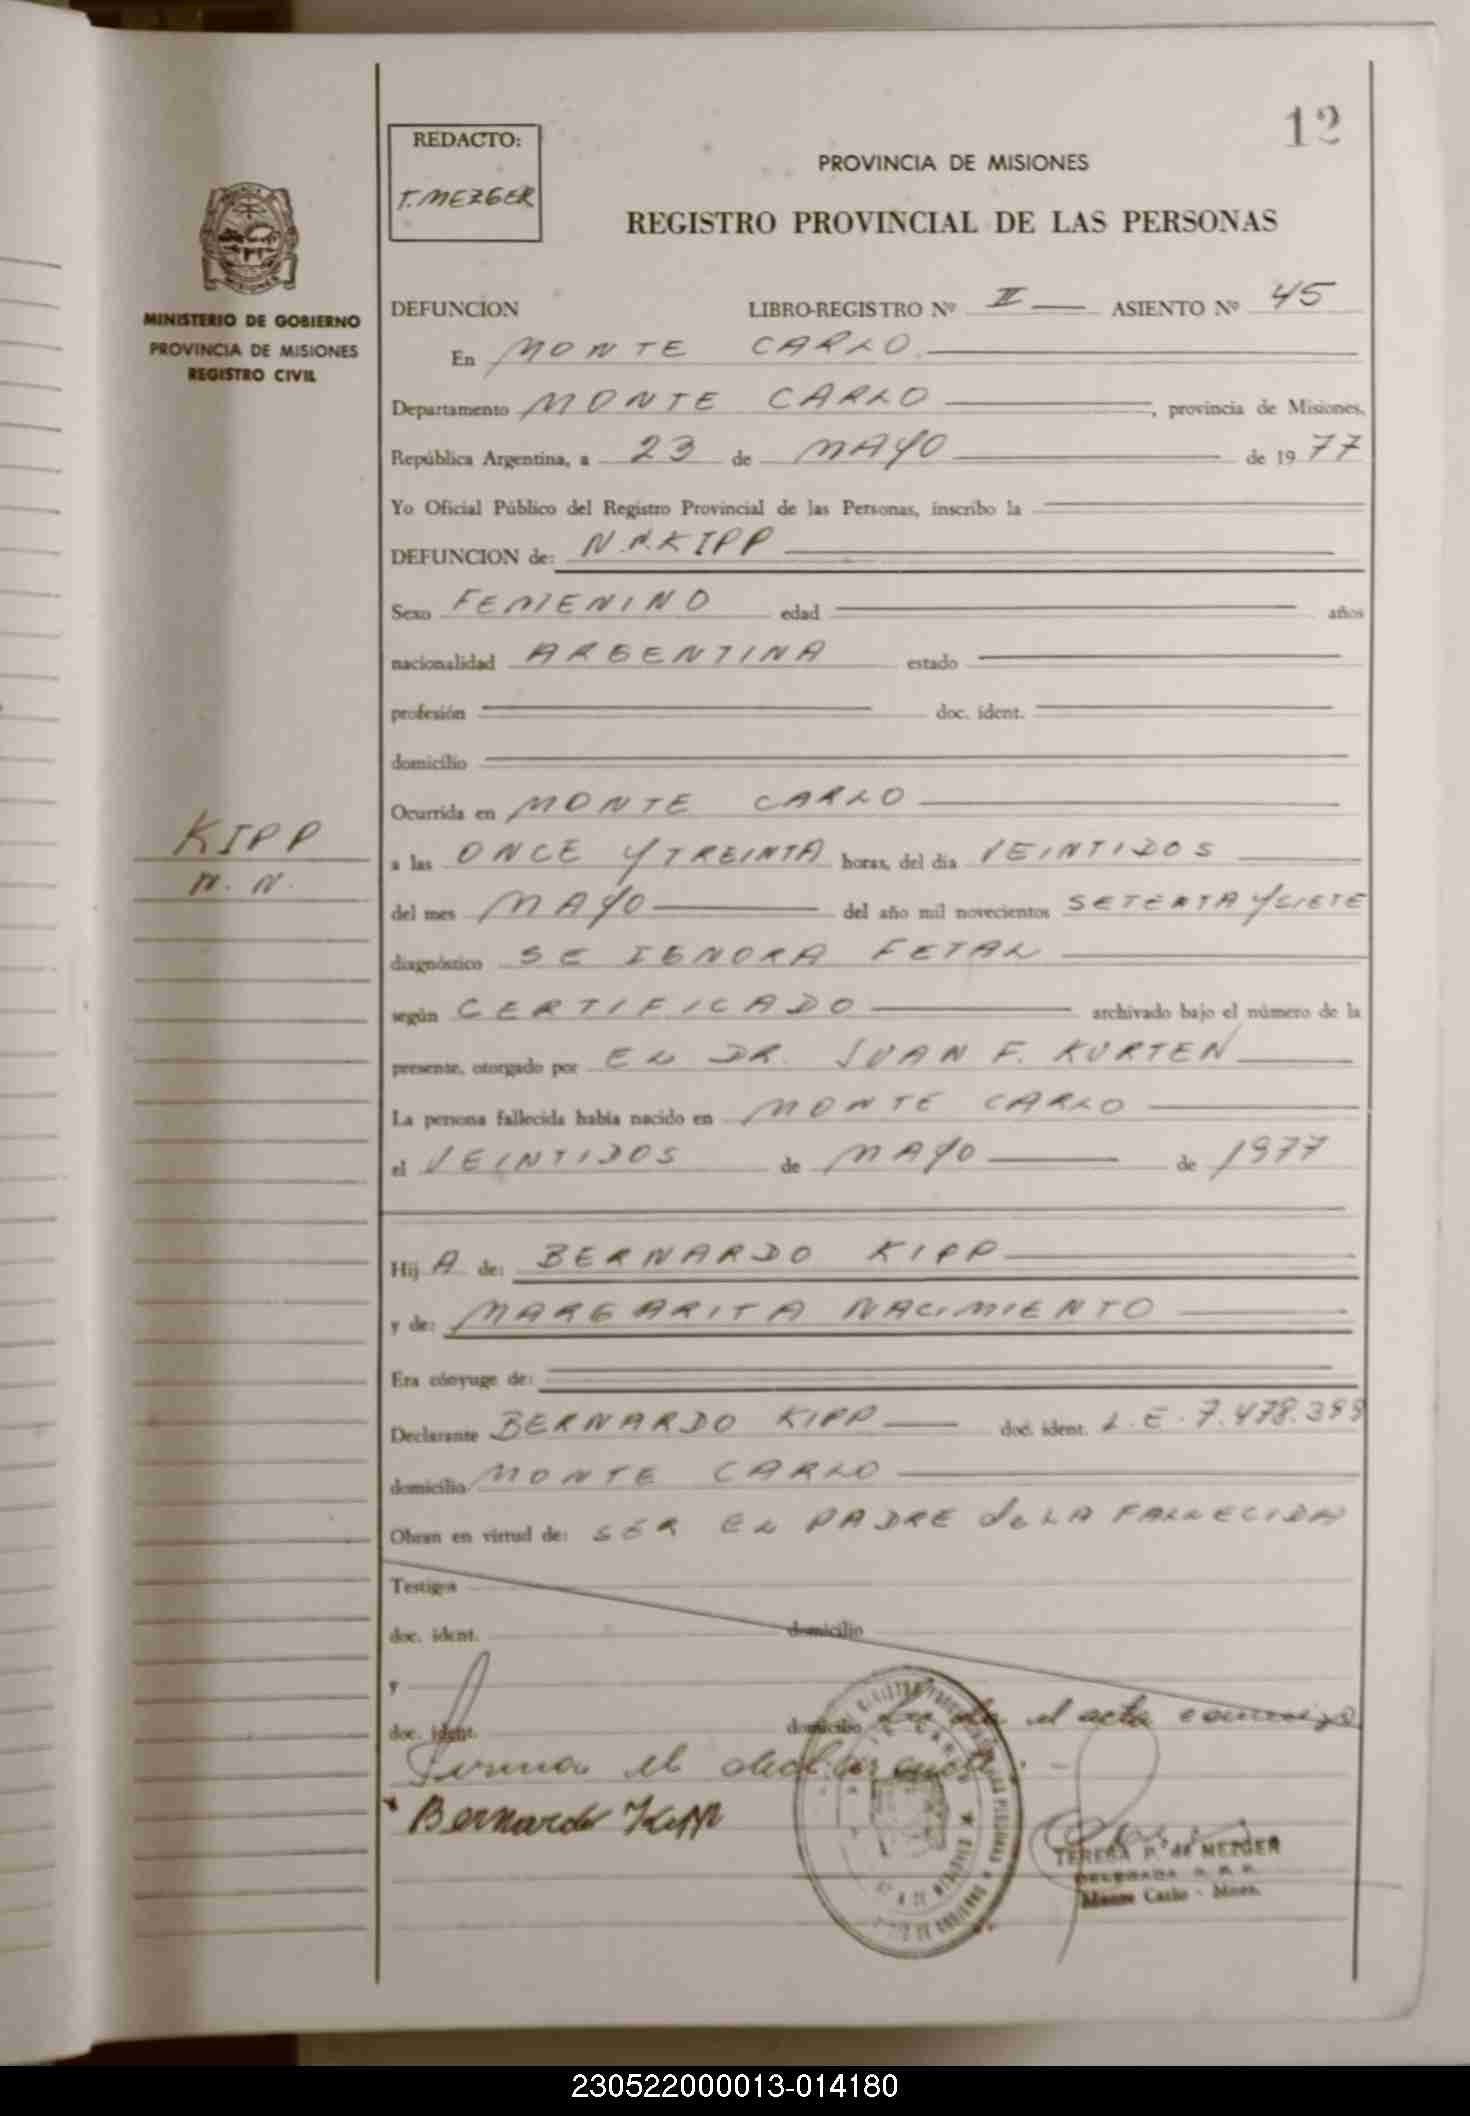 12
REDACTO:
T. MEZGER
PROVINCIA DE MISIONES
REGISTRO PROVINCIAL DE LAS PERSONAS
MINISTERIO DE GOBIERNO
PROVINCIA DE MISIONES
REGISTRO CIVIL
DEFUNCION LIBRO-REGISTRO Nº II ASIENTO Nº 45
En MONTE CARLO
Departamento MONTE CARLO, provincia de Misiones,
República Argentina, a 23 de MAYO de 1977
Yo Oficial Público del Registro Provincial de las Personas, inscribo la
DEFUNCION de: N.N. KIPP
Sexo FEMENINO edad años
nacionalidad ARGENTINA estado
profesión doc. ident.
domicilio
Ocurrida en MONTE CARLO
KIPP
N. N.
a las ONCE Y TREINTA horas, del día VEINTIDOS
del mes MAYO del año mil novecientos SETENTA Y SIETE
diagnóstico SE IGNORA FETAL
según CERTIFICADO archivado bajo el número de la
presente, otorgado por EL DR. JUAN F. KURTEN
La persona fallecida había nacido en MONTE CARLO
el VEINTIDOS de MAYO de 1977
Hij A de: BERNARDO KIPP
y de: MARGARITA NACIMIENTO
Era cónyuge de:
Declarante BERNARDO KIPP doc. ident. L.E. 7.478.399
domicilio MONTE CARLO
Obran en virtud de: SER EL PADRE de LA FALLECIDA
Testigos
doc. ident. domicilio
y
doc. ident. domicilio Leida el acta
Firma el declarante.
Bernardo Kipp
TERESA P. de MEZGER
DELEGADA R. P. P.
Monte Carlo - Mnes.
230522000013-014180